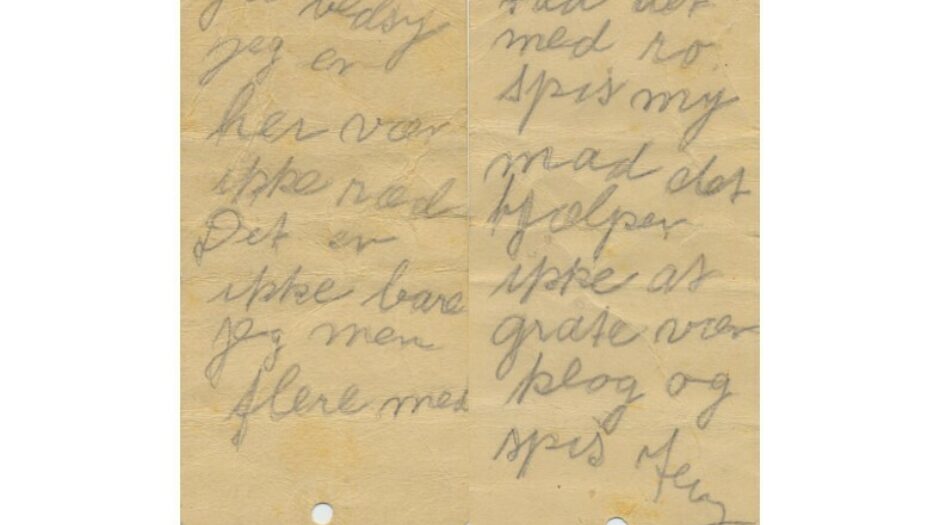 jeg er
her vær
ikke ræd
Det er
ikke bare
jeg men
flere med
med ro.
spis my
mad det
hjælper
ikke at
gråte vær
klog og
spis